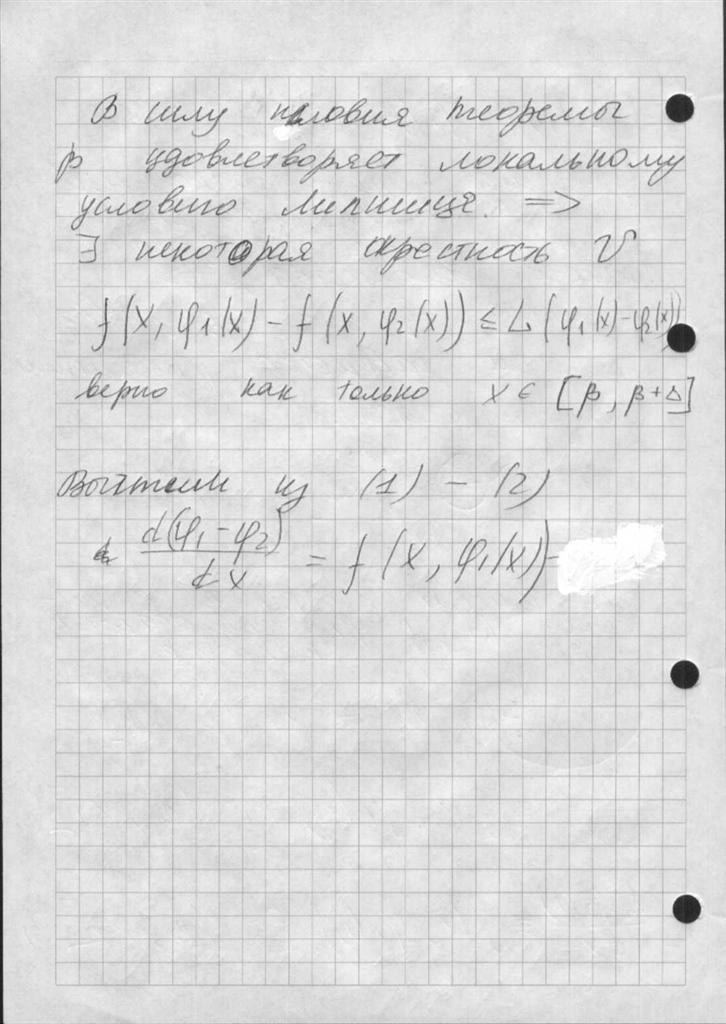 В силу условия теоремы
р удовлетворяет локальному
условию Липшица. =>
∃ некоторая окрестность U
f(x, φ1(x) - f(x, φ2(x)) ≤ L(φ1(x) - φ2(x))
верно как только x ∈ [β, β+Δ]
Вычтем из (1) - (2)
d(φ1-φ2)/dx = f(x, φ1(x)) -